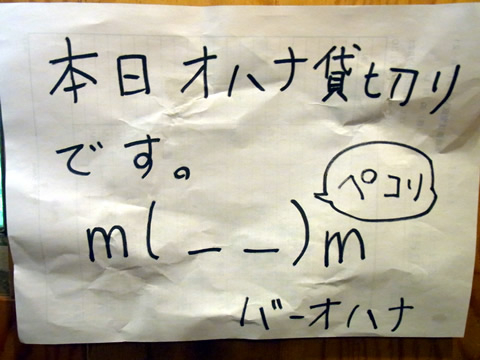 本日オハナ貸切り
です。
ペコリ
m(_ _)m
バーオハナ